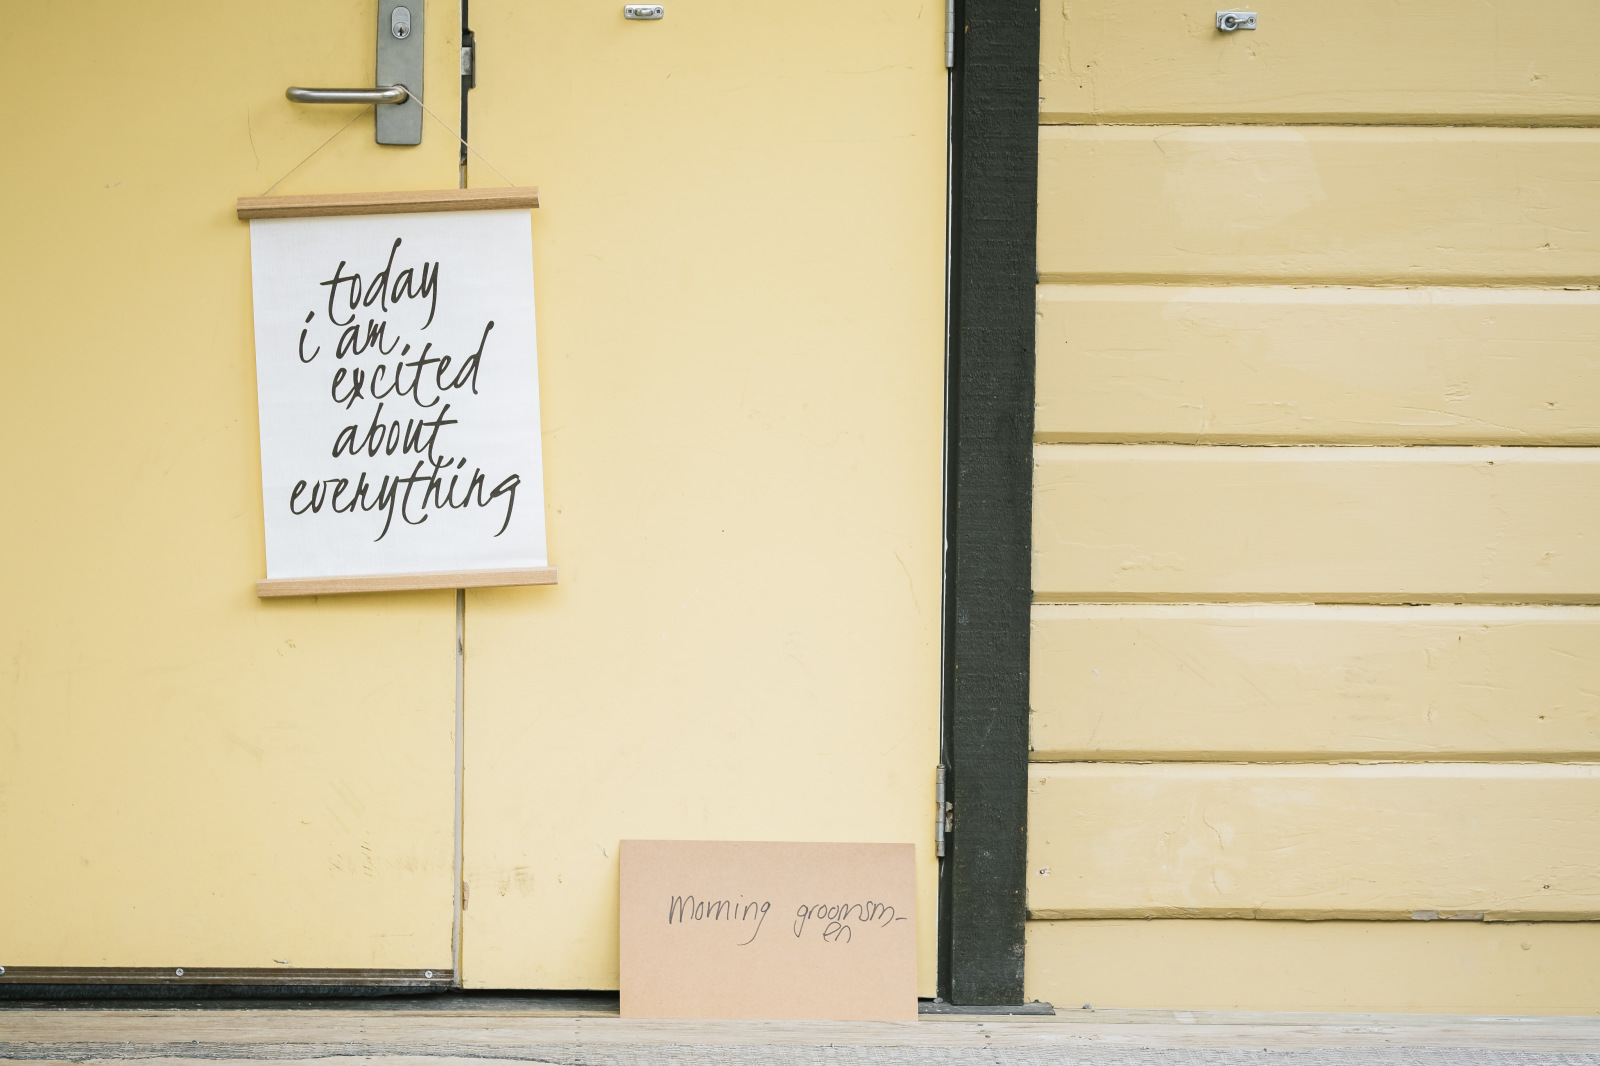 today
i am
excited
about
everything
Morning groomsm-
en